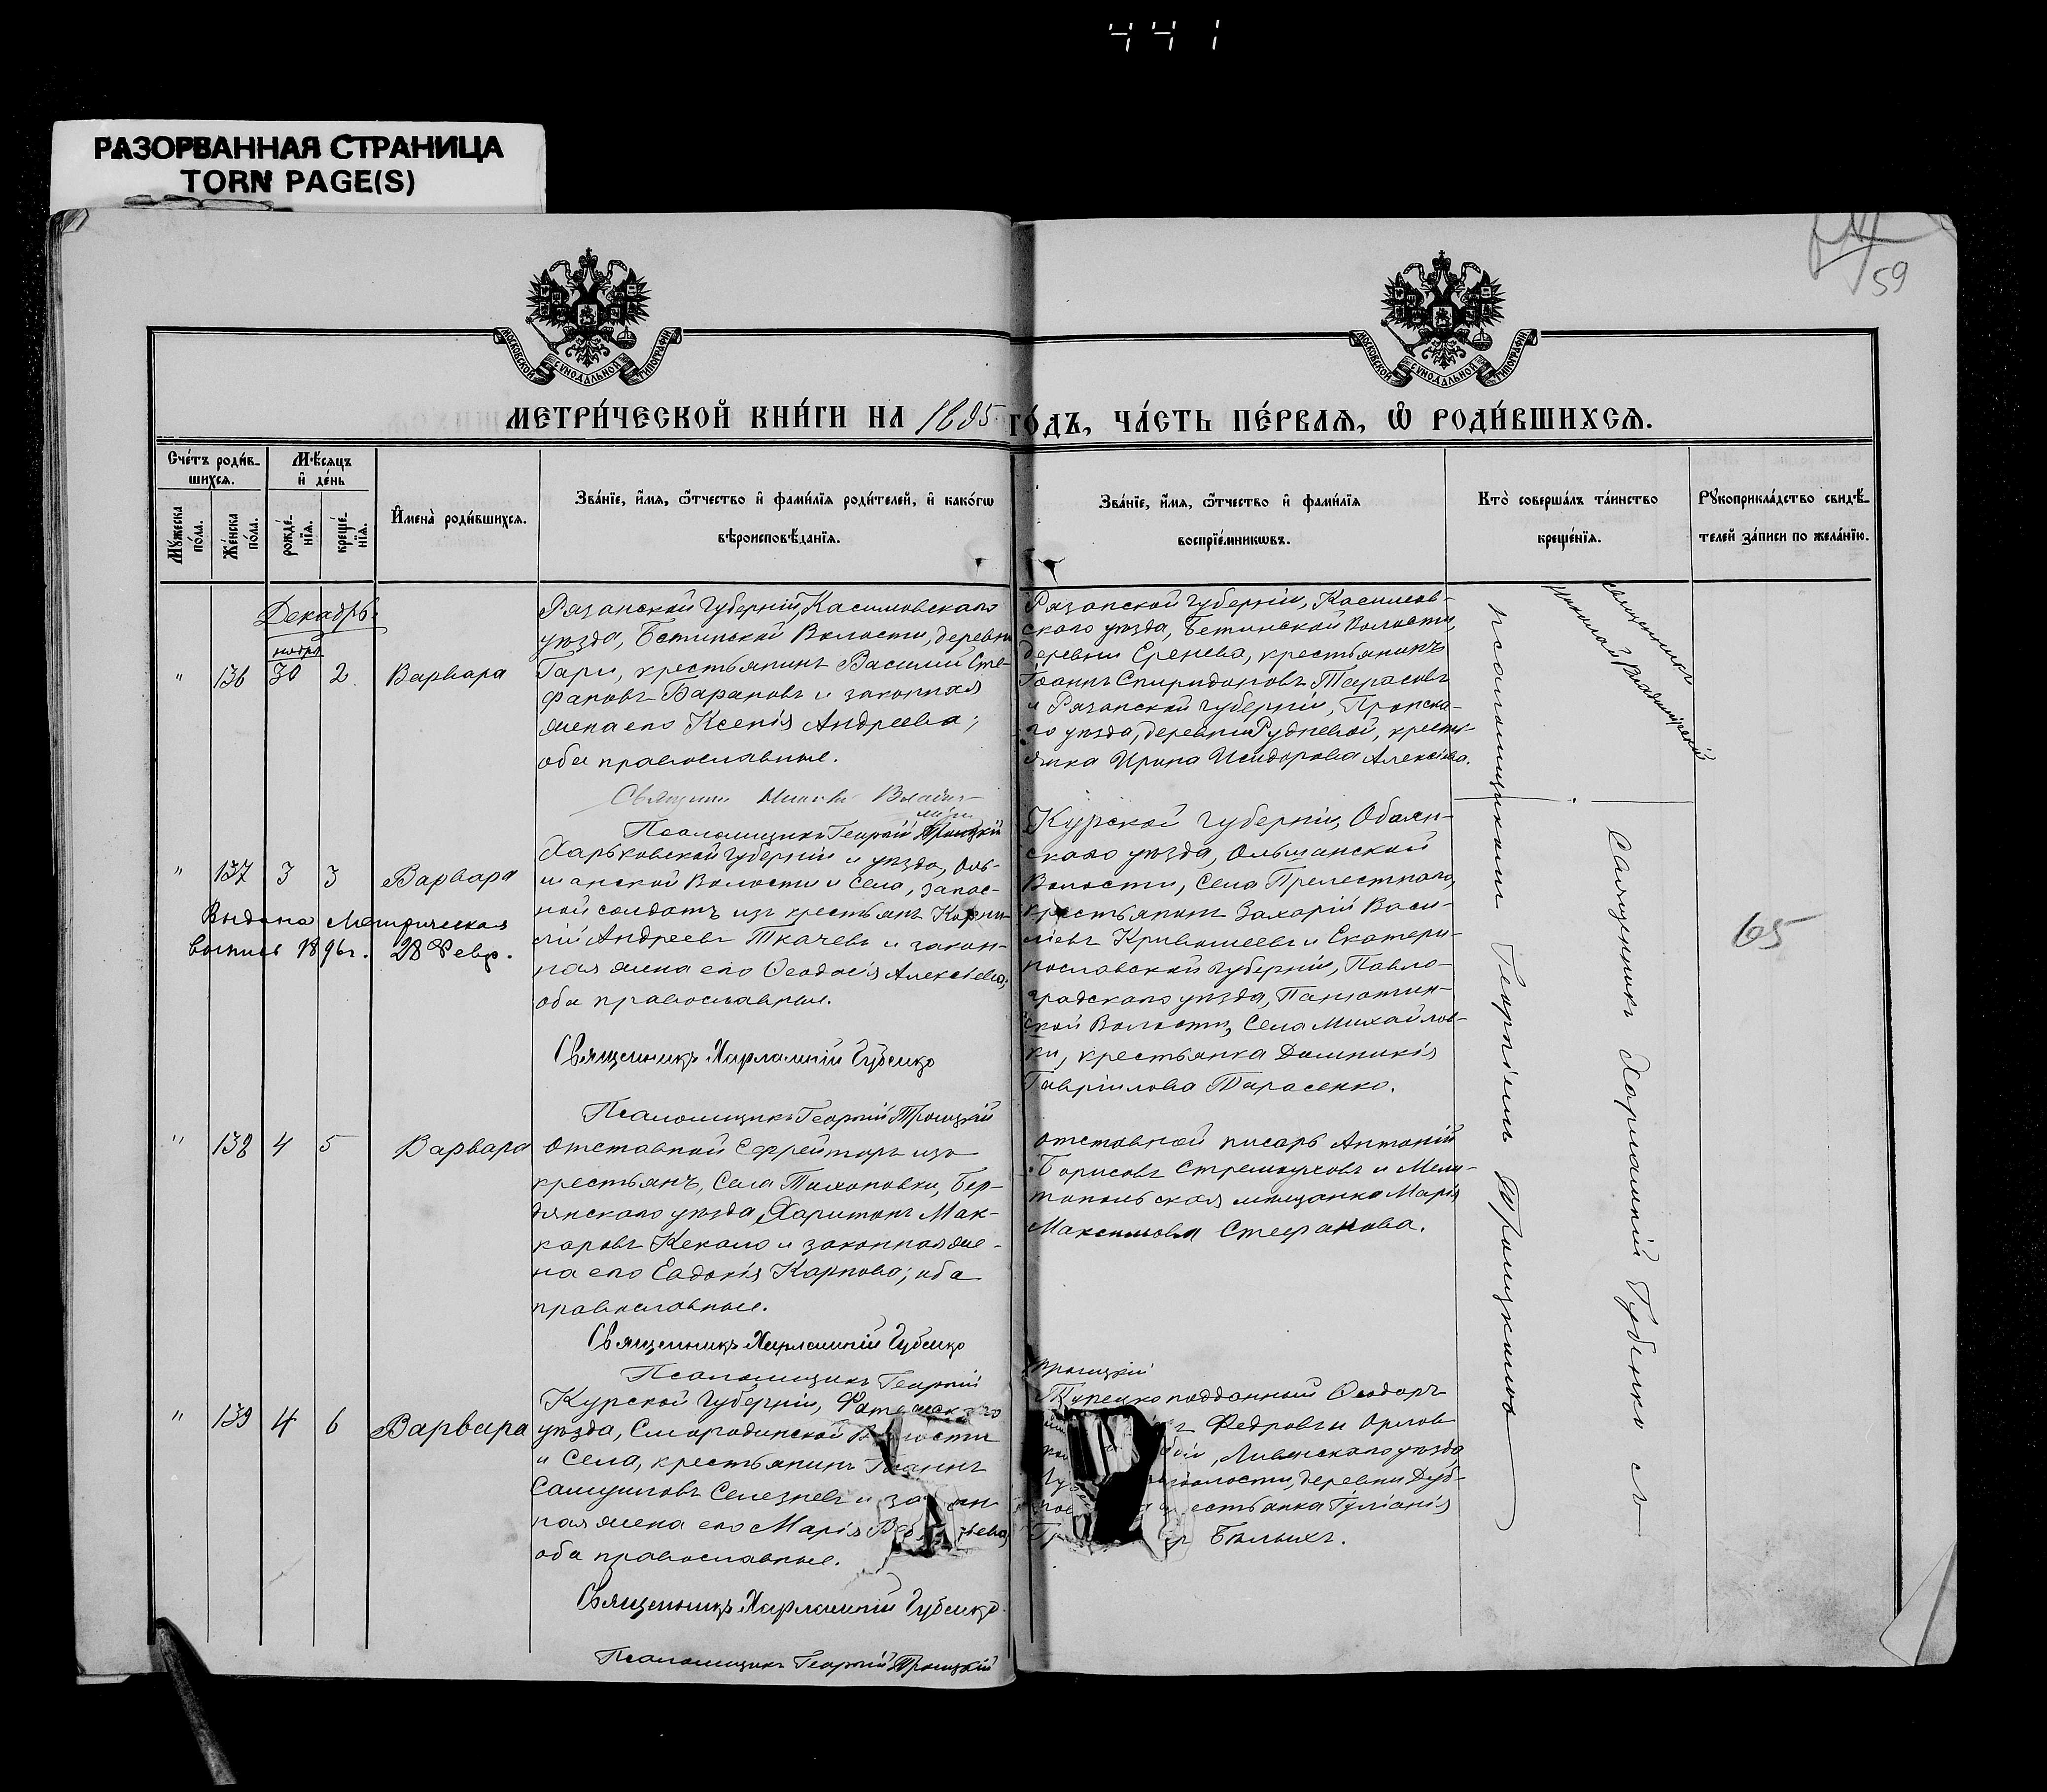 441
РАЗОРВАННАЯ СТРАНИЦА
TORN PAGE(S)
59
МОСКОВСКОЙ СѴНОДАЛЬНОЙ ТИПОГРАФІИ
МОСКОВСКОЙ СѴНОДАЛЬНОЙ ТИПОГРАФІИ
МЕТРИ́ЧЕСКОЙ КНИ́ГИ НА 1895 ГО́ДЪ, ЧА́СТЬ ПЕ́РВАѦ, Ѡ РОДИ́ВШИХСѦ.
Сче́тъ роди́в-
шихсѧ.
Мѣ́сѧцъ
и де́нь
Мꙋ́жеска
по́ла.
Же́нска
по́ла.
рожде́-
нїѧ.
креще́-
нїѧ.
Имена̀ роди́вшихсѧ.
Зва́нїе, и́мѧ, ѻ́тчество и фами́лїѧ роди́телей, и како́гѡ
вѣроисповѣ́данїѧ.
Зва́нїе, и́мѧ, ѻ́тчество и фами́лїѧ
воспрїе́мникѡвъ.
Кто̀ соверша́лъ та́инство
креще́нїѧ.
Рꙋкоприкла́дство свидѣ́-
телей за́писи по жела́нїю.
Декабрь.
ноябр
" 136 30 2 Варвара
Рязанской губерніи, Касимовскаго
уѣзда, Бетинской Волости, деревни
Гари, крестьянинъ Василій Сте-
фановъ Барановъ и законная
жена его Ксенія Андреева;
оба православные.
Священн Николай Владим-
Псаломщикъ Георгій Троицкій
Рязанской губерніи, Касимов-
скаго уѣзда, Бетинской Волости,
деревни Еренева, крестьянинъ
Іоаннъ Спиридоновъ Тарасовъ
и Рязанской губерніи, Пронска-
го уѣзда, деревни Рудневой, кресть-
янка Ирина Исидорова Алексѣева.
священникъ
Николай Владимірскій
" 137 3 3 Варвара
Выдана Метрическая
выпись 1896г. 28 Февр.
Харьковской губерніи и уѣзда, Оль-
шанской Волости и Села, запас-
ной солдатъ изъ крестьянъ Корни-
лій Андреевъ Ткачевъ и закон-
ная жена его Ѳеодосія Алексѣева;
оба православные.
Священникъ Харлампій Губенко
Псаломщикъ Георгій Троицкій
Курской губерніи, Обоян-
скаго уѣзда, Ольшанской
Волости, Села Прелестнаго,
крестьянинъ Захарій Васи-
ліевъ Кривошеевъ и Екатери-
нославской губерніи, Павло-
градскаго уѣзда, Панютин-
ской Волости, Села Михайлов-
ки, крестьянка Домникія
Гавріилова Тарасенко.
псаломщикомъ Георгіемъ Троицкимъ
Священникъ Харлампій Губенко съ
65
" 138 4 5 Варвара
Отставной Ефрейторъ изъ
крестьянъ, Села Поповки, Бер-
дянскаго уѣзда, Харитонъ Мак-
каровъ Кекало и законная же-
на его Евдокія Карпова; оба
православные.
Священникъ Харлампій Губенко
Псаломщикъ Георгій Троицкій
отставной писарь Антоній
Борисовъ Стремоуховъ и Мели-
топольская мѣщанка Марія
Максимова Стефанова.
" 139 4 6 Варвара
Курской губерніи,
уѣзда, Смородинской Волости
и Села, крестьянинъ Іоаннъ
Самуиловъ Селезневъ и
ная жена его Марія
оба православные.
Священникъ Харлампій Губенко.
Псаломщикъ Георгій Троицкій
Турецко подданный Ѳеодоръ
Федровъ и Орлов
Ливенскаго уѣзда
волости, деревни Дуб-
естьянка Іуліанія
Бѣлыхъ.